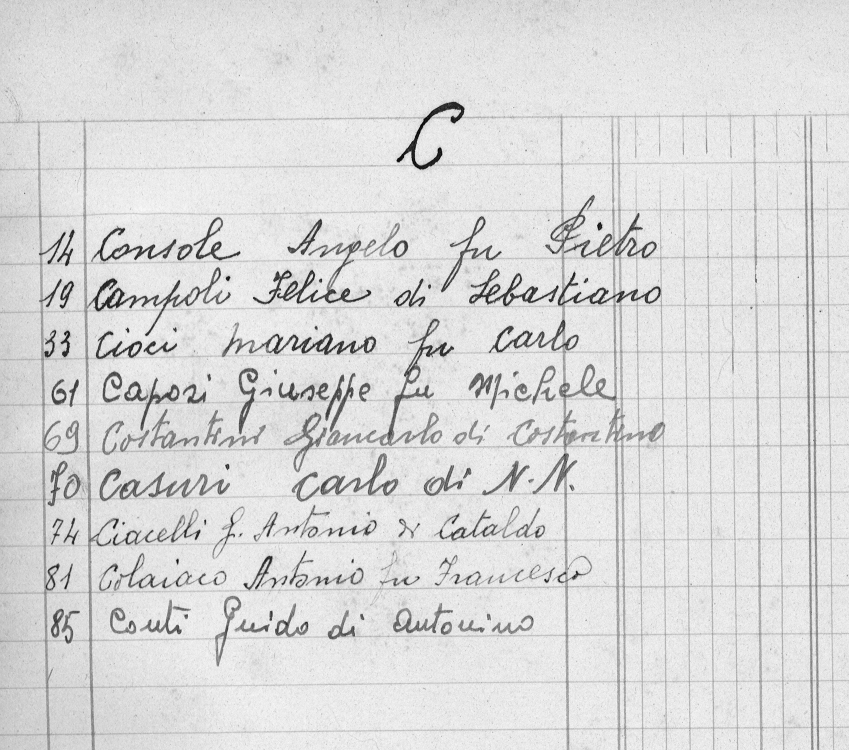 C
14 Console Angelo fu Pietro
19 Campoli Felice di Sebastiano
33 Cioci Mariano fu Carlo
61 Caposi Giuseppe fu Michele
69 Costantini Giancarlo di Costantino
70 Casuri Carlo di N.N.
74 Ciacelli G. Antonio di Cataldo
81 Colaiaco Antonio fu Francesco
85 Conti Guido di Antonino